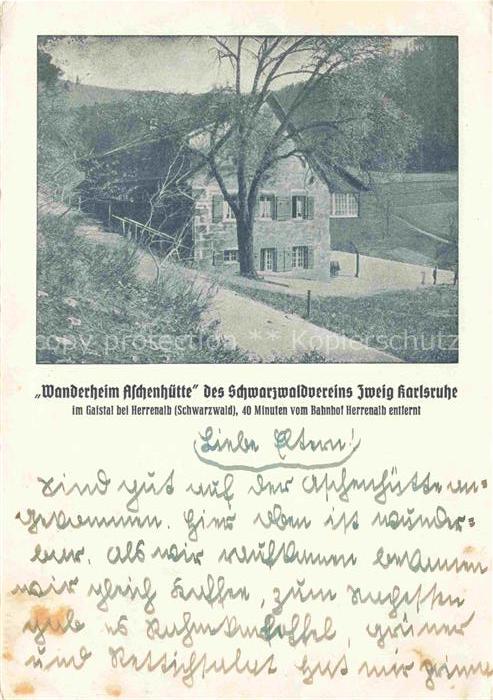 copy protection ** Kopierschutz
„Wanderheim Aschenhütte" des Schwarzwaldvereins Zweig Karlsruhe
im Gaistal bei Herrenalb (Schwarzwald), 40 Minuten vom Bahnhof Herrenalb entfernt
Liebe Eltern!
Sind gut auf der Aschenhütte an-
gekommen. Hier oben ist wunder-
bar. Als wir raufkamen bekamen
wir gleich Kaffee, zum Nachtessen
gab es Rahmkartoffel, grüner
und Rettichsalat hat mir prima